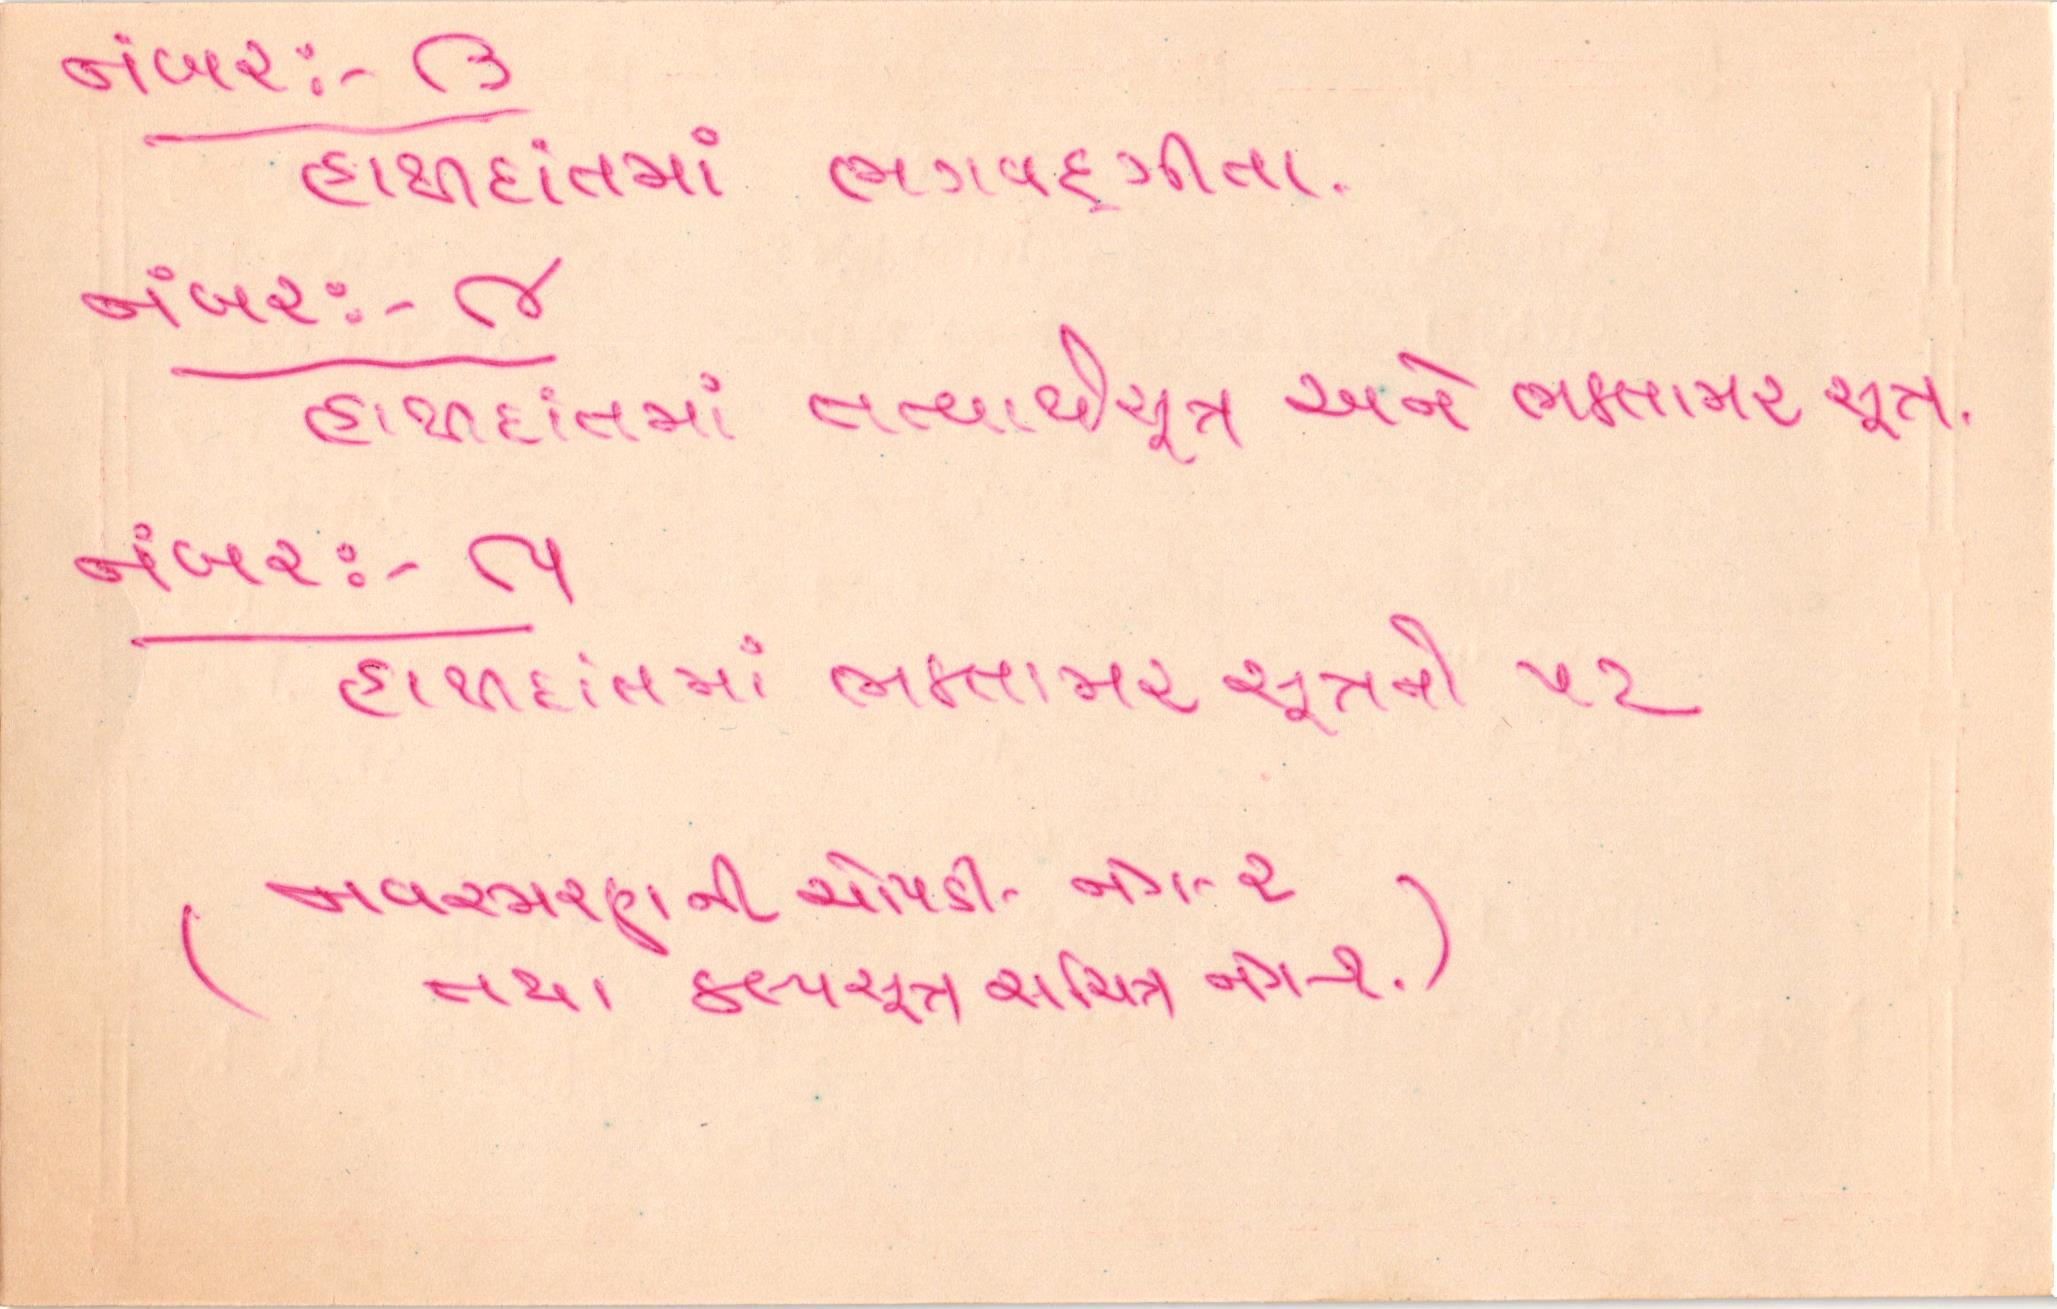 નંબર:- ૩
હાથીદાંતમાં ભગવદ્ગીતા.
નંબર:- ૪
હાથીદાંતમાં તત્વાર્થસૂત્ર અને ભકતામર સૂત્ર.
નંબર:- ૫
હાથીદાંતમાં ભકતામર સૂત્રનો પટ
(નવસ્મરણની ચોપડી- નંગ- ૨
તથા કલ્પસૂત્ર સચિત્ર નંગ-૧.)